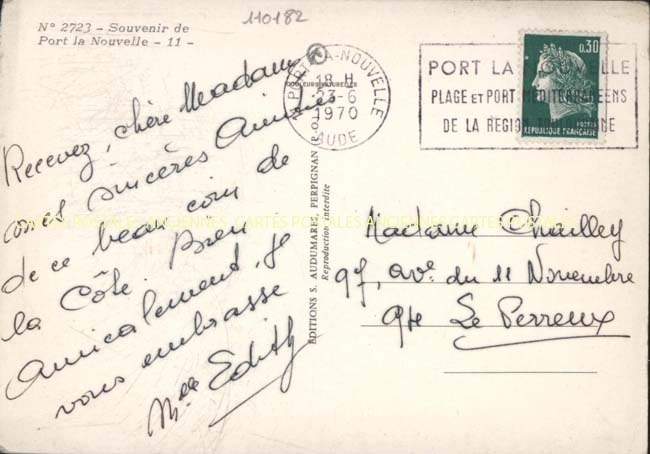 110182
N° 2723 - Souvenir de
Port la Nouvelle - 11 -
Recevez, chère Madame
mes sincères Amitiés
de ce beau coin de
la Côte. Bien
Amicalement. Je
vous embrasse
Mlle Edith
PORT-LA-NOUVELLE
18 H
23-6
1970
AUDE
PORT LA NOUVELLE
PLAGE ET PORT MÉDITERRANÉENS
DE LA RÉGION
0,30
POSTES
REPUBLIQUE FRANÇAISE
EDITIONS S. AUDUMARES, PERPIGNAN
Reproduction interdite
CARTES POSTALES ANCIENNES CARTES POSTALES ANCIENNES CARTES POSTALES
Madame Chailley
97, ave du 11 Novembre
94 Le Perreux